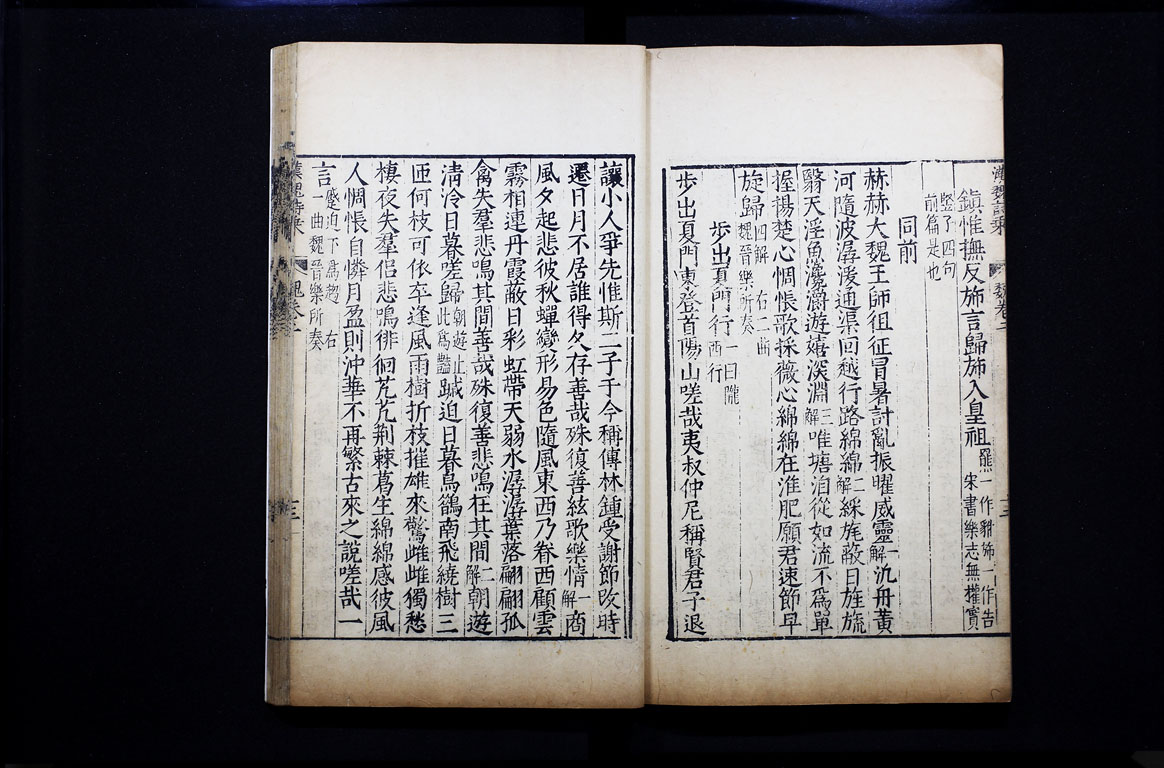 漢魏詩乘 魏卷二 十三
鎮惟撫反旆言歸旆入皇祖羆一作貔旆一作告
宋書樂志無權實
竪子四句
前篇是也
同前
赫赫大魏王師徂征冒暑討亂振曜威靈一解汎舟黃
河隨波潺湲通渠回越行路綿綿二解綵旄蔽日旌旒
翳天淫魚瀺灂遊嬉深淵三解唯塘泊從如流不為單
握揚楚心惆悵歌採薇心綿綿在淮肥願君速節早
旋歸四解 右二曲
魏晉樂所奏
步出夏門行一曰隴
西行
步出夏門東登首陽山嗟哉夷叔仲尼稱賢君子退
讓小人爭先惟斯二子于今稱傳林鍾受謝節改時
遷日月不居誰得久存善哉殊復善絃歌樂情一解商
風夕起悲彼秋蟬變形易色隨風東西乃眷西顧雲
霧相連丹霞蔽日彩虹帶天弱水潺潺葉落翩翩孤
禽失羣悲鳴其間善哉殊復善悲鳴在其間二解朝遊
清泠日暮嗟歸朝遊止
此為豔蹴迫日暮烏鵲南飛繞樹三
匝何枝可依卒逢風雨樹折枝摧雄來驚雌雌獨愁
棲夜失羣侶悲鳴徘徊芃芃荊棘葛生綿綿感彼風
人惆悵自憐月盈則沖華不再繁古來之說嗟哉一
言蹙迫下為趨 右
一曲魏晉樂所奏